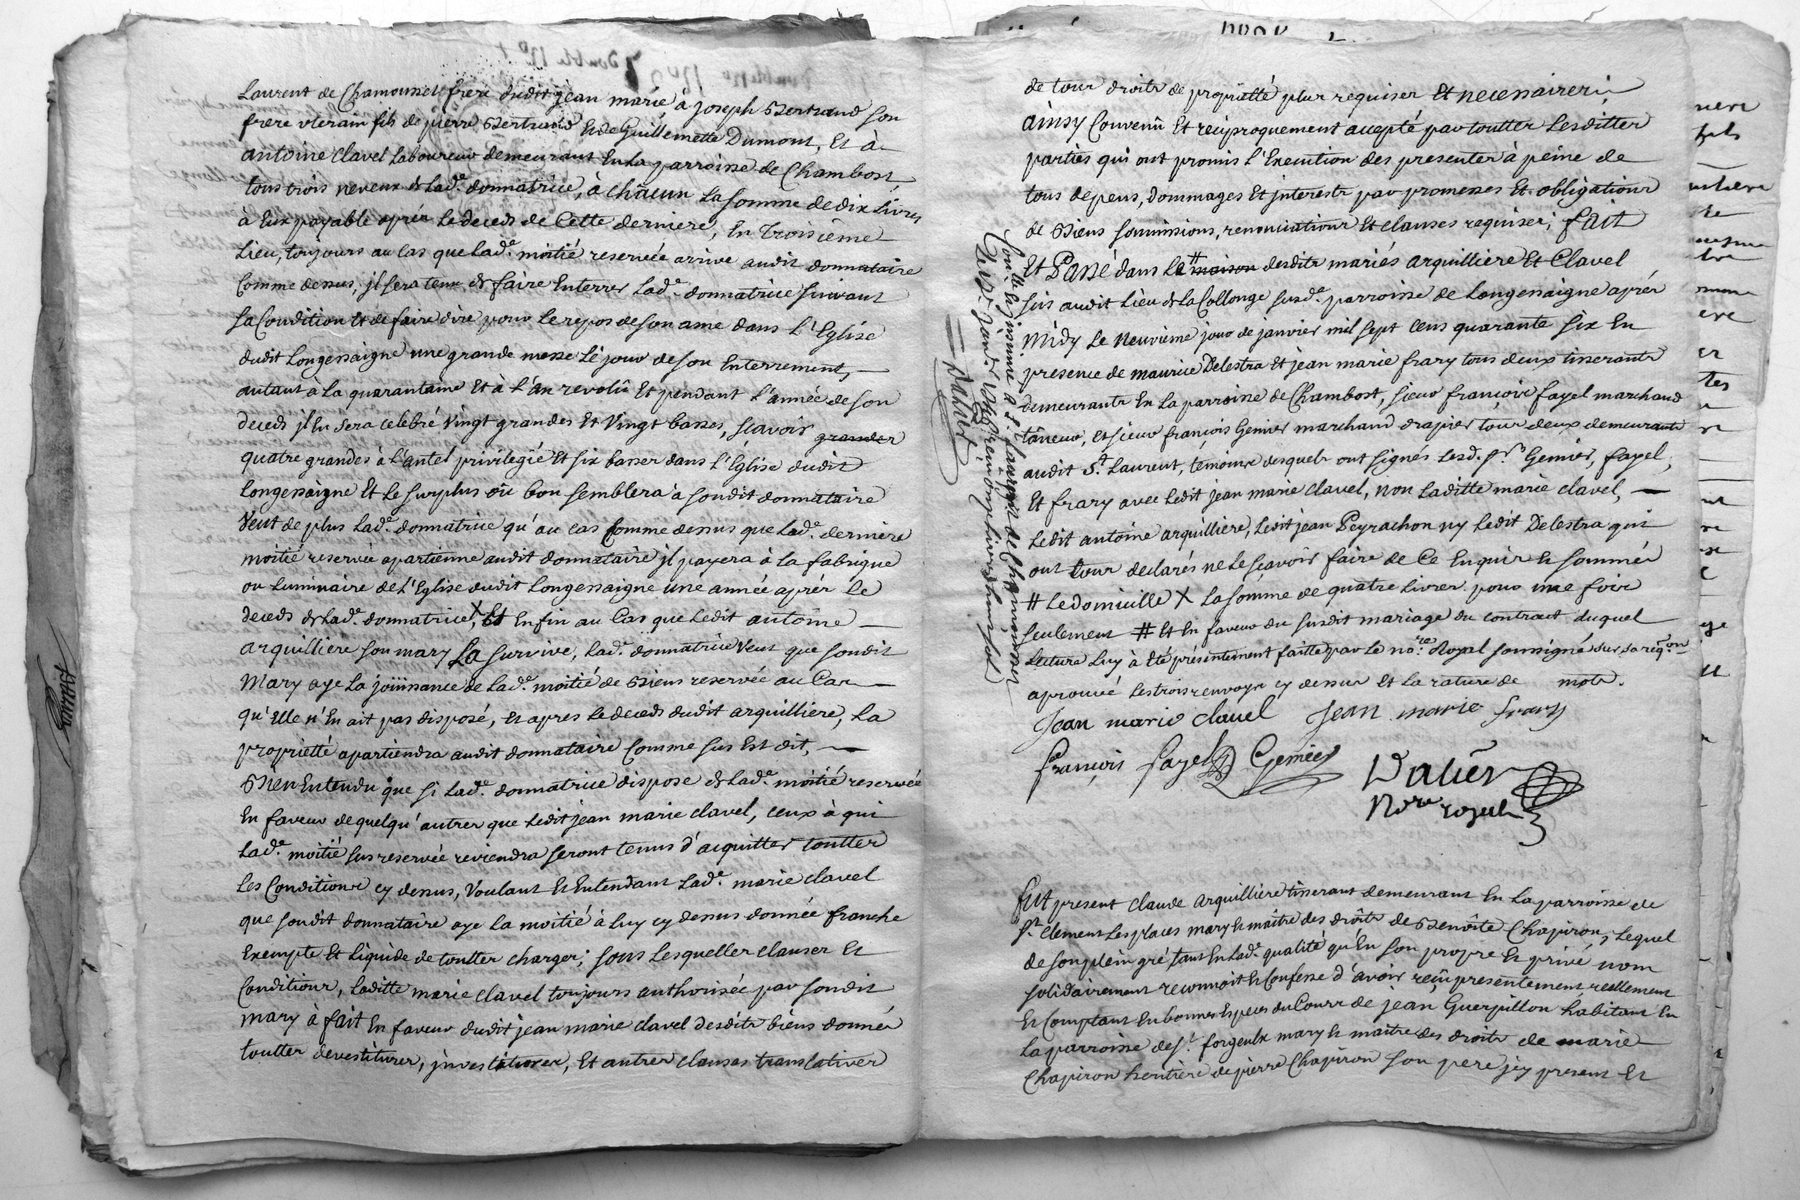 Laurent de Chamousset frere dudit jean marie à joseph Bertrand son
frere uterain fils de pierre Bertrand et de Guillemette Dumont, Et à
antoine clavel Laboureur demeurant en La parroisse de Chambost
tous trois neveux de Lad.e donnatrice, à chacun La somme de dix Livres
à Eux payable aprés Le deceds de Cette derniere, En Troisième
Lieu, toujours au Cas que Lad.e moitié reservée arrive audit donnataire
Comme dessus, jl sera tenu de faire Enterrer Lad.e donnatrice suivant
sa Condition Et de faire dire pour Le repos de son ame dans L'Eglise
dudit Longessaigne une grande messe Le jour de son Enterrement,
autant à La quarantaine Et à L'an revolû Et pendant L'année de son
deceds jl En sera celebré Vingt grandes Et Vingt basses, sçavoir grandes
quatre grandes à L'autel privilegié Et six basses dans L'Eglise dudit
Longessaigne Et Le surplus où bon semblera à sondit donnataire
Veut de plus Lad.e donnatrice qu'au cas Comme dessus que Lad.e derniere
moitié reservée apartienne audit donnataire jl payera à La fabrique
ou Luminaire de L'Eglise dudit Longessaigne une année aprés Le
deceds de Lad.e donnatrice, X Et Enfin au Cas que Ledit antoine
arquilliere son mary La survive, Lad.e donnatrice Veut que sondit
Mary aye La joüissance de Lad.e moitié de Biens reservée au Cas
qu'Elle n'En ait pas disposé, Et apres Le deceds dudit arquilliere, La
proprietté apartiendra audit donnataire Comme sus Est dit,
Bien Entendu que si Lad.e donnatrice dispose de Lad.e moitié reservée
En faveur de quelqu'autres que Ledit jean marie clavel, ceux à qui
Lad.e moitié sus reservée reviendra seront tenus d'acquitter touttes
Les Conditions cy dessus, Voulant Et Entendant Lad.e marie clavel
que sondit donnataire aye La moitié à Luy cy dessus donnée franche
Exempte Et Liquide de touttes charges; sous Lesquelles clauses Et
Conditions, Laditte marie clavel toujours authorisée par sondit
mary à fait En faveur dudit jean marie clavel desdits biens donnés
touttes devestitures, jnvestitures, Et autres clauses translatives
de tous droits de proprietté plus requises Et necessaires;
ainsy Convenû Et reciproquement accepté par touttes Lesdittes
parties qui ont promis L'Execution des presentes à peine de
tous depens, dommages Et jnterests par promesses Et obligations
de Biens soumissions, renonciations Et clauses requises; fait
Et Passé dans Le # maison desdits mariés arquilliere Et Clavel
sis audit Lieu de La Collonge susd.e parroisse de Longessaigne aprés
Midy Le neuvieme jour de janvier mil sept Cens quarante six En
presence de maurice Delestra Et jean marie frary tous deux tisserants
demeurants En La parroisse de Chambost, sieur françois fayel marchand
tanneur, Et sieur françois Genier marchand drapier tous deux demeurants
audit S.t Laurent, temoins desquels ont signés Lesd. s.rs Genier, fayel,
Et frary avec Ledit jean marie clavel, non Laditte marie clavel,
Ledit antoine arquilliere, Ledit jean Peyrachon ny Ledit Delestra qui
ont tous declarés ne Le sçavoir faire de Ce Enquis Et sommés
# Le domicille X La somme de quatre Livres pour une fois
seulement # Et En faveur du susdit mariage du contract duquel
Lecture Luy à Eté présentement faitte par Le no.re Royal soussigné sur sa req.on
aprouvé Les trois renvoys cy dessus Et La rature de mots.
Jean marie clavel Jean marie frary
françois fayel Genier
Nore royal
Conllé
fut present claude arquilliere tisserant demeurant En La parroisse de
S.t clement Les places mary Et maitre des droits de Benoite Chapiron, Lequel
de son plein gré tant En Lad.e qualité qu'En son propre Et privé nom
solidairement reconnoit Et Confesse d'avoir reçû presentement reellement
Et Comptant En bonnes Especes du Cours de jean Guerpillon habitant En
La parroisse de S.t forgeulx mary Et maitre des droits de marie
Chapiron heritiere de pierre Chapiron son pere jcy present Et